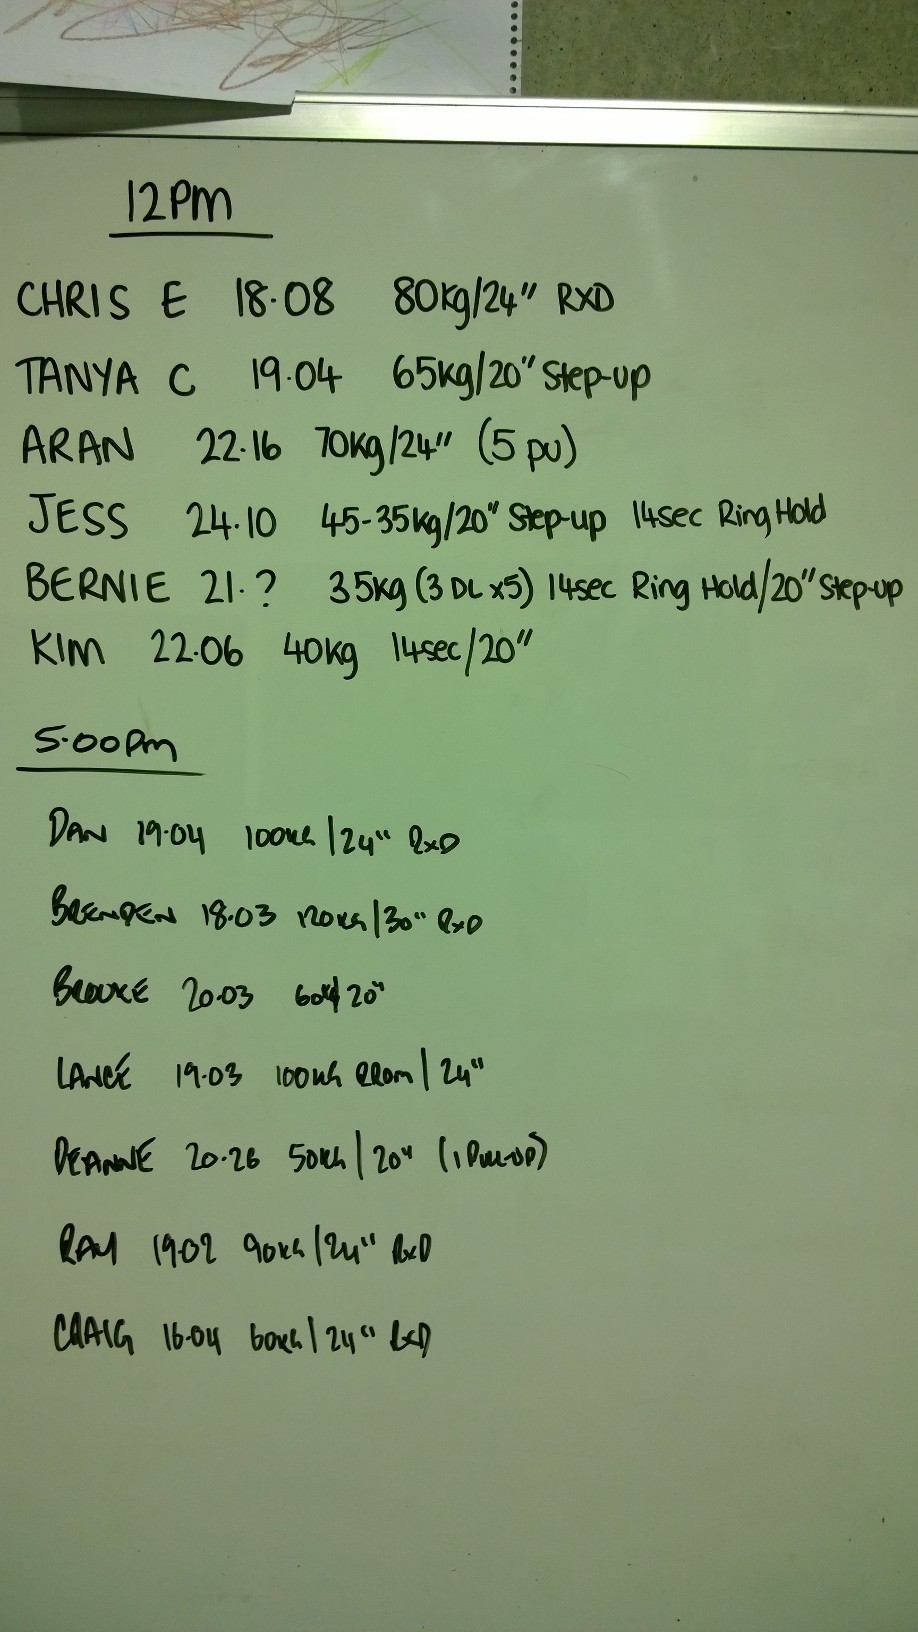 12PM
CHRIS E 18.08 80kg/24" RXD
TANYA C 19.04 65kg/20" Step-up
ARAN 22.16 70kg/24" (5 pu)
JESS 24.10 45-35kg/20" Step-up 14sec Ring Hold
BERNIE 21.? 35kg (3 DL x5) 14sec Ring Hold/20" Step-up
KIM 22.06 40kg 14sec/20"
5.00pm
DAN 19.04 100KG/24" RxD
BRENDEN 18.03 120KG/30" RxD
BROOKE 20.03 60kg/20"
LANCE 19.03 100KG RROM/24"
DEANNE 20.26 50KG/20" (1 PULL-UP)
RAY 19.02 90KG/24" RxD
CRAIG 16.04 60KG/24" RxD